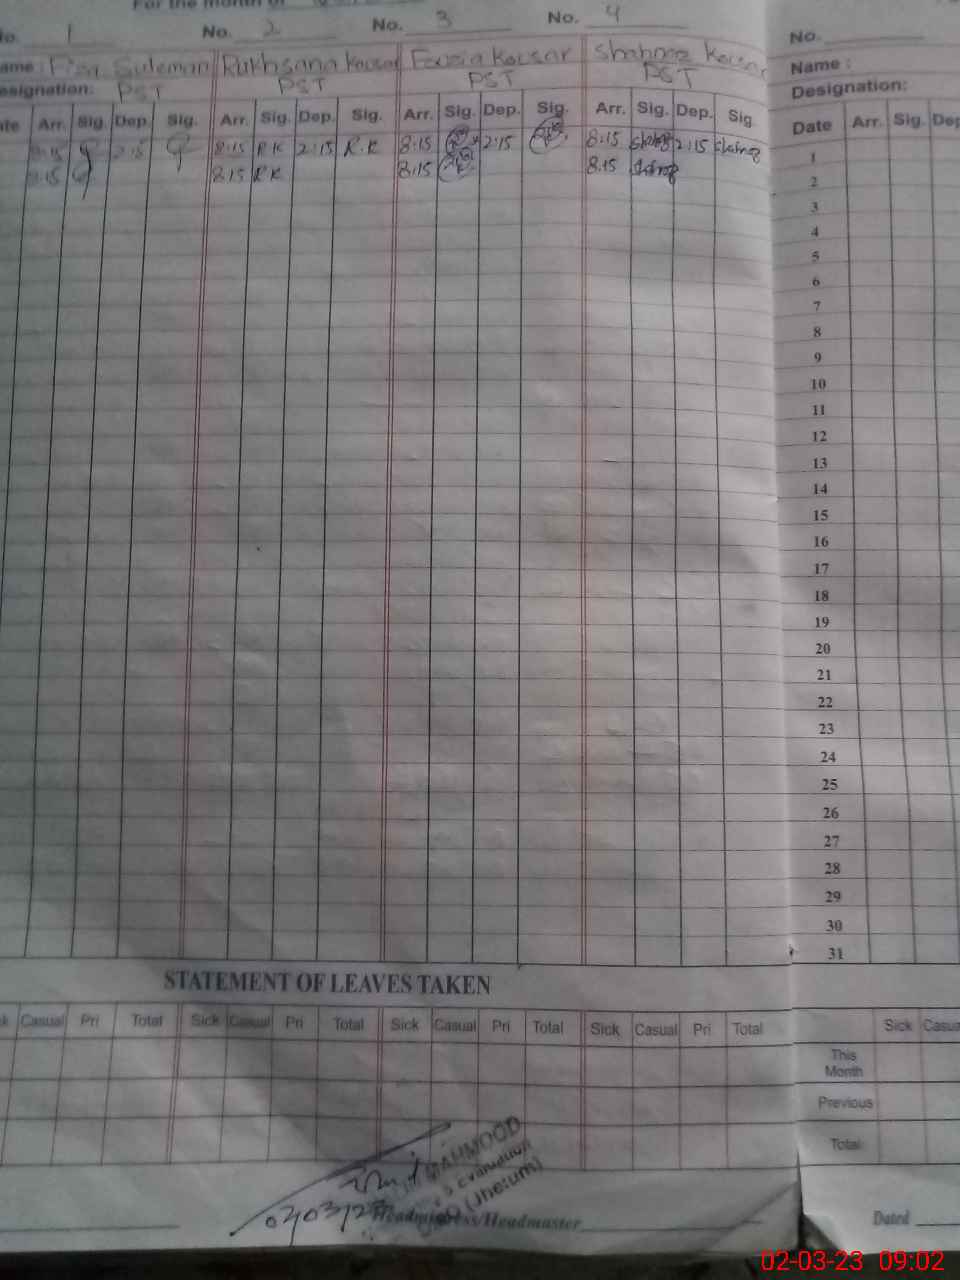 For the month of
No. 1 No. 2 No. 3 No. 4
Name : Fiza Suleman Rukhsana Kousar Fouzia Kousar Shahnaz Kousar
Designation: PST PST PST PST
Date Arr. Sig. Dep. Sig. Arr. Sig. Dep. Sig. Arr. Sig. Dep. Sig. Arr. Sig. Dep. Sig.
8:15 2:15 8:15 R.K 2:15 R.K 8:15 2:15 8:15 Shahnaz 2:15 Shahnaz
8:15 8:15 R.K 8:15 8:15 Shahnaz
STATEMENT OF LEAVES TAKEN
Sick Casual Pri Total Sick Casual Pri Total Sick Casual Pri Total Sick Casual Pri Total
MAHMOOD
(Jhelum)
02/03/23
Headmistress/Headmaster
No.
Name :
Designation:
Date Arr. Sig. Dep
1
2
3
4
5
6
7
8
9
10
11
12
13
14
15
16
17
18
19
20
21
22
23
24
25
26
27
28
29
30
31
Sick Casua
This
Month
Previous
Total
Dated
02-03-23 09:02